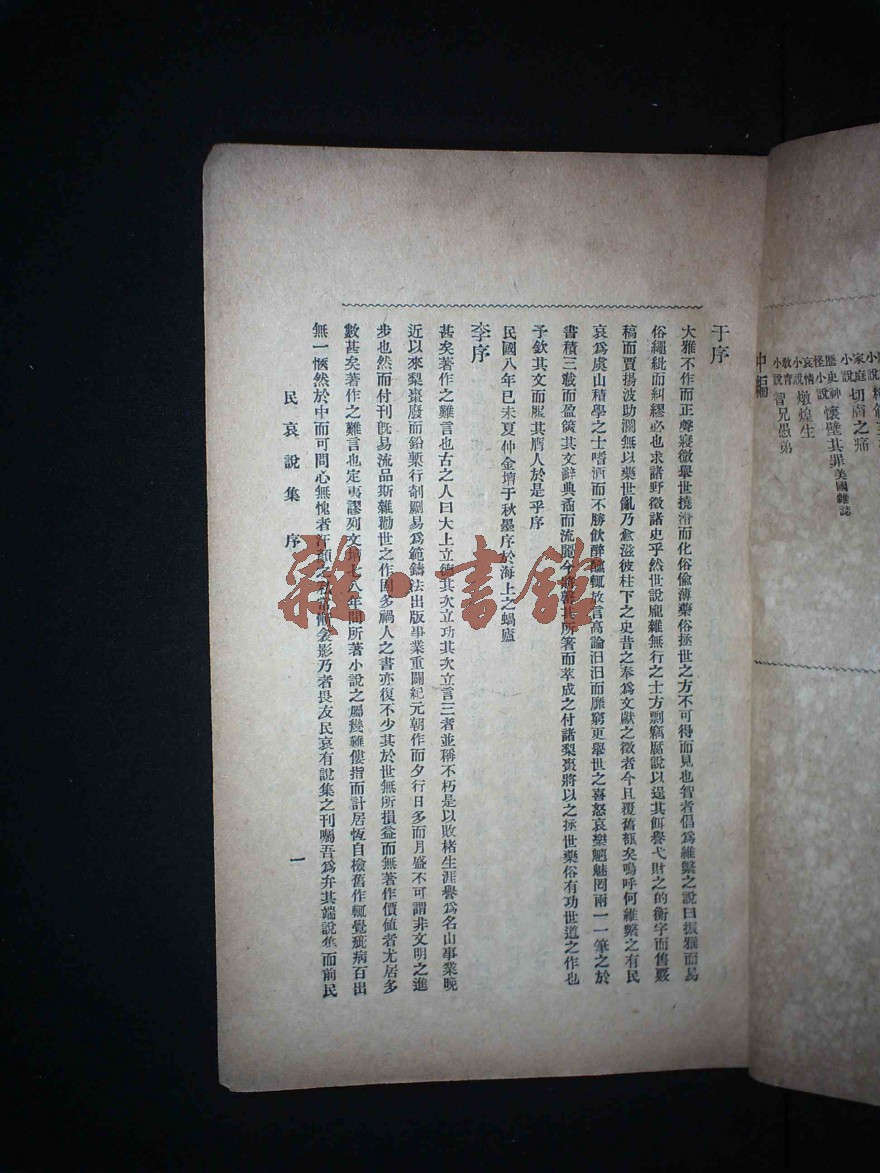 家庭小說 切膚之痛
歷史神怪小說 懷璧其罪 美國雜誌
哀情小說 燉煌生
教育小說 智兄愚弟
中編
于序
大雅不作而正聲寢微舉世撓滑而化俗偷薄藥俗拯世之方不可得而見也智者倡爲維繫之說曰振雅而易
俗繩紕而糾繆必也求諸野徵諸史乎然世說龐雜無行之士方剽竊腐說以逞其餌譽弋財之的衡字而售嚴
稿而賈揚波助瀾無以藥世亂乃愈滋彼柱下之史昔之奉爲文獻之徵者今且覆舊瓿矣嗚呼何維繫之有民
哀爲虞山積學之士嗜酒而不勝飲醉醺輒放言高論汩汩而靡窮更舉世之喜怒哀樂魑魅罔兩一一筆之於
書積三載而盈篋其文辭典矞而流麗今將磬其所箸而萃成之付諸梨棗將以之拯世藥俗有功世道之作也
予欽其文而服其膺人於是乎序
民國八年己未夏仲金壇于秋墨序於海上之蝸廬
李序
甚矣著作之難言也古之人曰大上立德其次立功其次立言三者並稱不朽是以敗楮生涯譽爲名山事業晚
近以來梨棗廢而鉛槧行剞劂易爲範鑄法出版事業重闢紀元朝作而夕行日多而月盛不可謂非文明之進
步也然而付刊旣易流品斯雜勸世之作固多禍人之書亦復不少其於世無所損益而無著作價値者尤居多
數甚矣著作之難言也定夷謬列文壇七八年間所著小說之屬幾難僂指而計居恆自檢舊作輒覺疵病百出
無一愜然於中而可問心無愧者汗顏之私常慚衾影乃者畏友民哀有說集之刊囑吾爲弁其端說集而前民
民哀說集 序
一
雜·書館